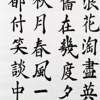 浪花淘盡英
舊在幾度夕
秋月春風一
都付笑談中